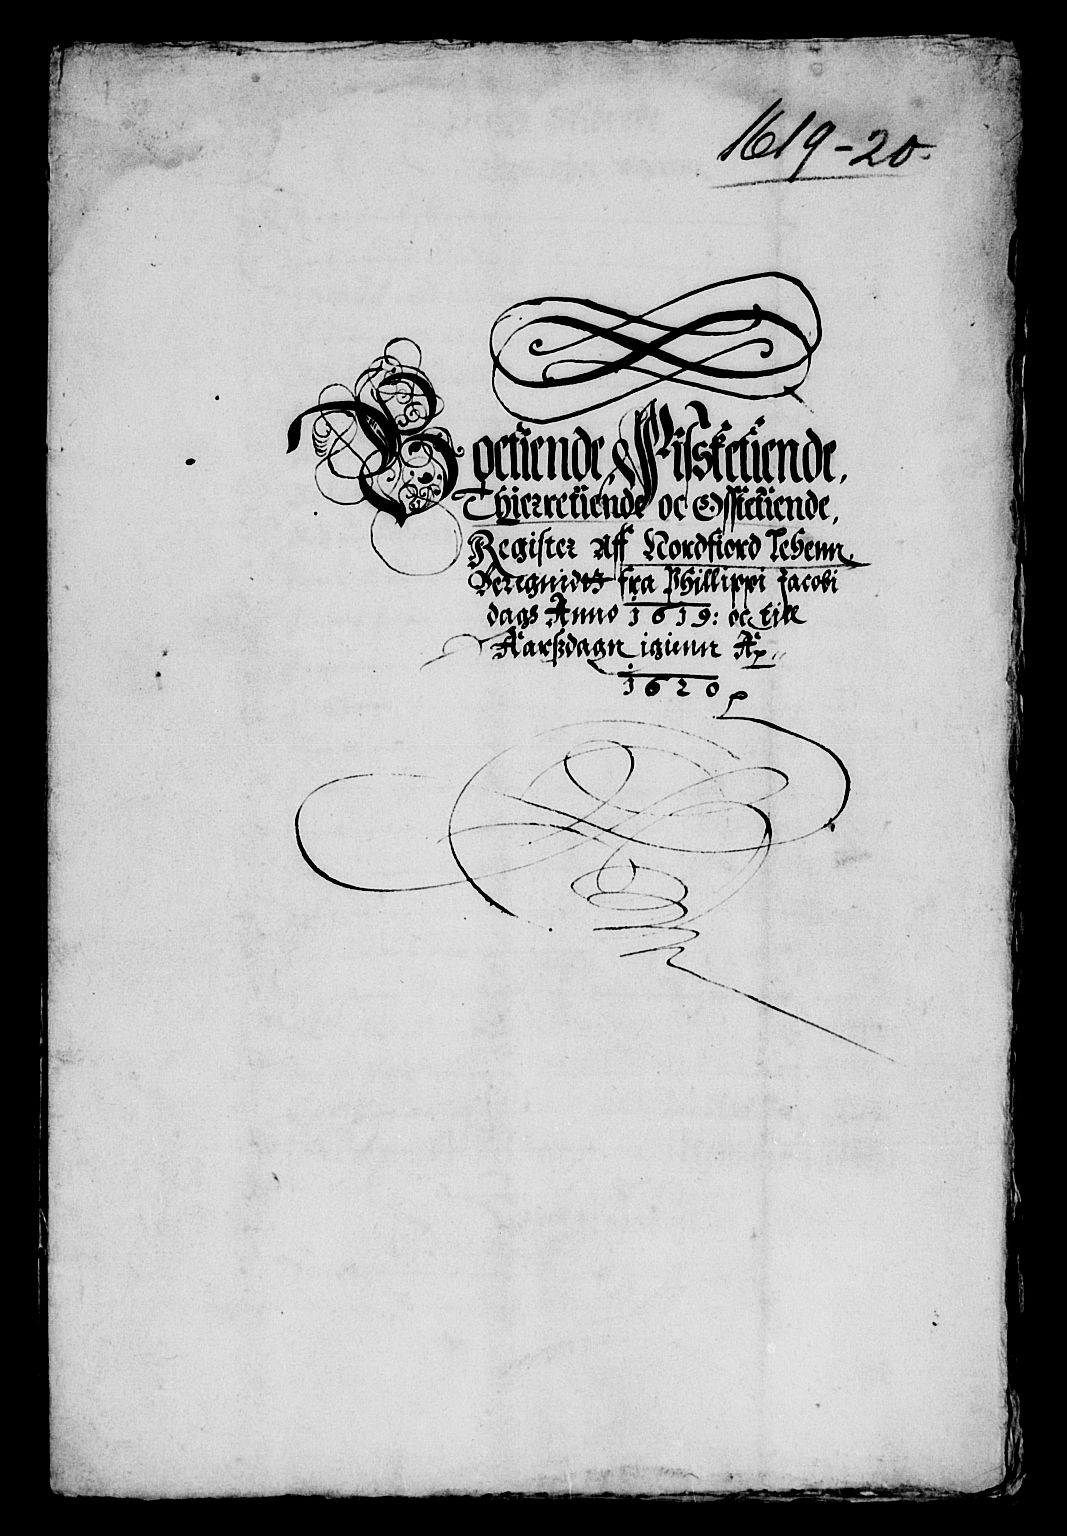 1619-20.
Koetiende, Fisketiende,
Thierretiende oc Ossetiende,
Register Aff Nordfiord Lehenn,
Beregnidtz fra Phillippi Jacobi
dags Anno 1619: oc till
Aarßdagn igienn Aº.
1620